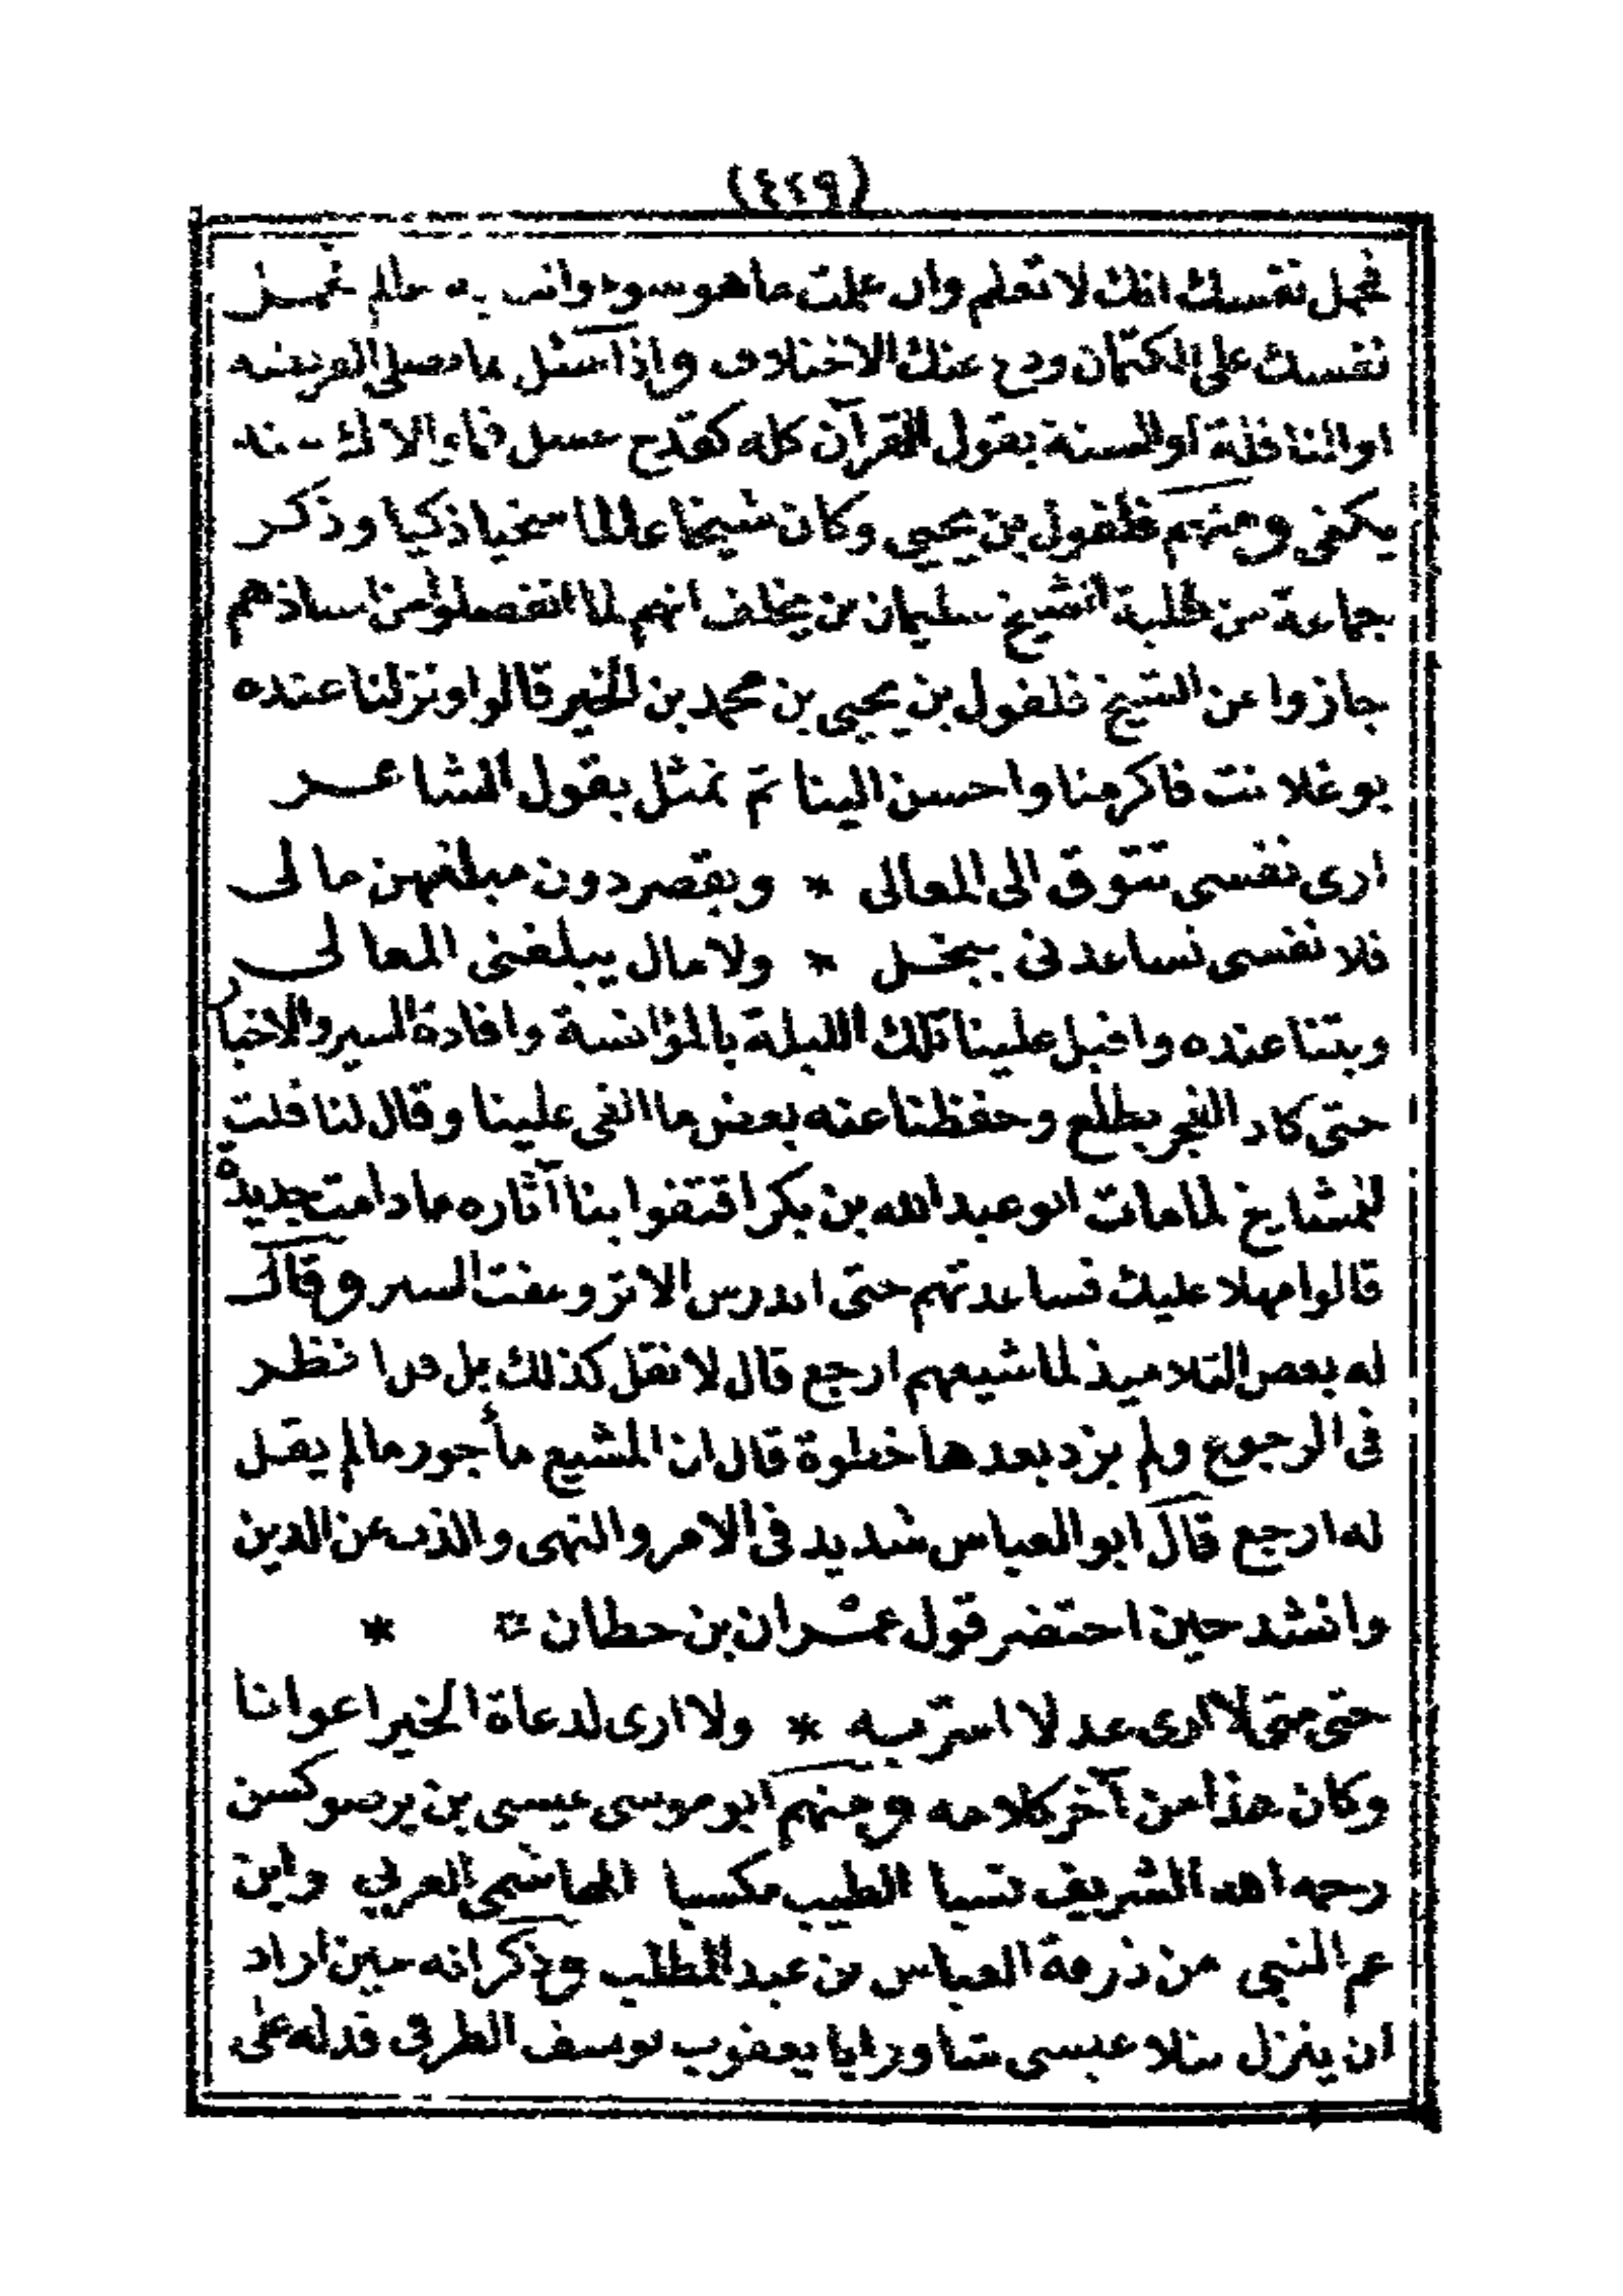 (٤٢٩)
فحمل نفسك انك لا تعلم وان علمت ما هو سوء وانت به عالم فحمل
نفسك على الكتمان ودع عنك الاختلاف واذا سئل بما دصلى الفريضه
او النافلة او السنة بقول القرآن كله كقدح عسل فماء الاناء منه
يكفى ومنهم فلفول بن يحيى وكان شيخا عالما سخيا ذكيا وذكر
جماعة من طلبة الشيخ سليمان بن يخلف انهم لما انفصلوا من اساذهم
جازوا عن الشيخ فلفول بن يحيى بن محمد بن الخير قالوا ونزلنا عنده
بوغلانت فاكرمنا واحسن الينا ثم تمثل بقول الشاعر
ارى نفسى تتوق الى المعالى * ويقصر دون مبلغهن مالى
فلا نفسى تساعدنى ببخل * ولا مال يبلغنى المعالى
وبتنا عنده واقبل علينا تلك الليلة بالمؤانسة وافادة السير والاخبار
حتى كاد الفجر يطلع وحفظنا عنه بعض ما القى علينا وقال لنا قلت
للمشايخ لما مات ابو عبد الله بن بكر اقتفوا بنا آثاره ما دامت جديدة
قالوا مهلا عليك فساعدتهم حتى اندرس الاثر وعفت السير وقال
له بعض التلاميذ لما شيعهم ارجع قال لا تقل كذلك بل قل انظر
فى الرجوع ولم يزد بعدها خطوة قال ان المشيع مأجور ما لم يقل
له ارجع قال ابو العباس شديد فى الامر والنهى والذب عن الدين
وانشد حين احتضر قول عمران بن حطان * *
حتى متى لا ارى عدلا اسر به * ولا ارى لدعاة الخير اعوانا
وكان هذا من آخر كلامه ومنهم ابو موسى عيسى بن يرصوكسن
رحمه الله الشريف نسبا الطيب مكسبا الهاشمى العربي وابن
عم النبي من ذرية العباس بن عبد المطلب وذكر انه حين اراد
ان ينزل بتلا عيسى شاور ابا يعقوب يوسف الطرفى فدله على